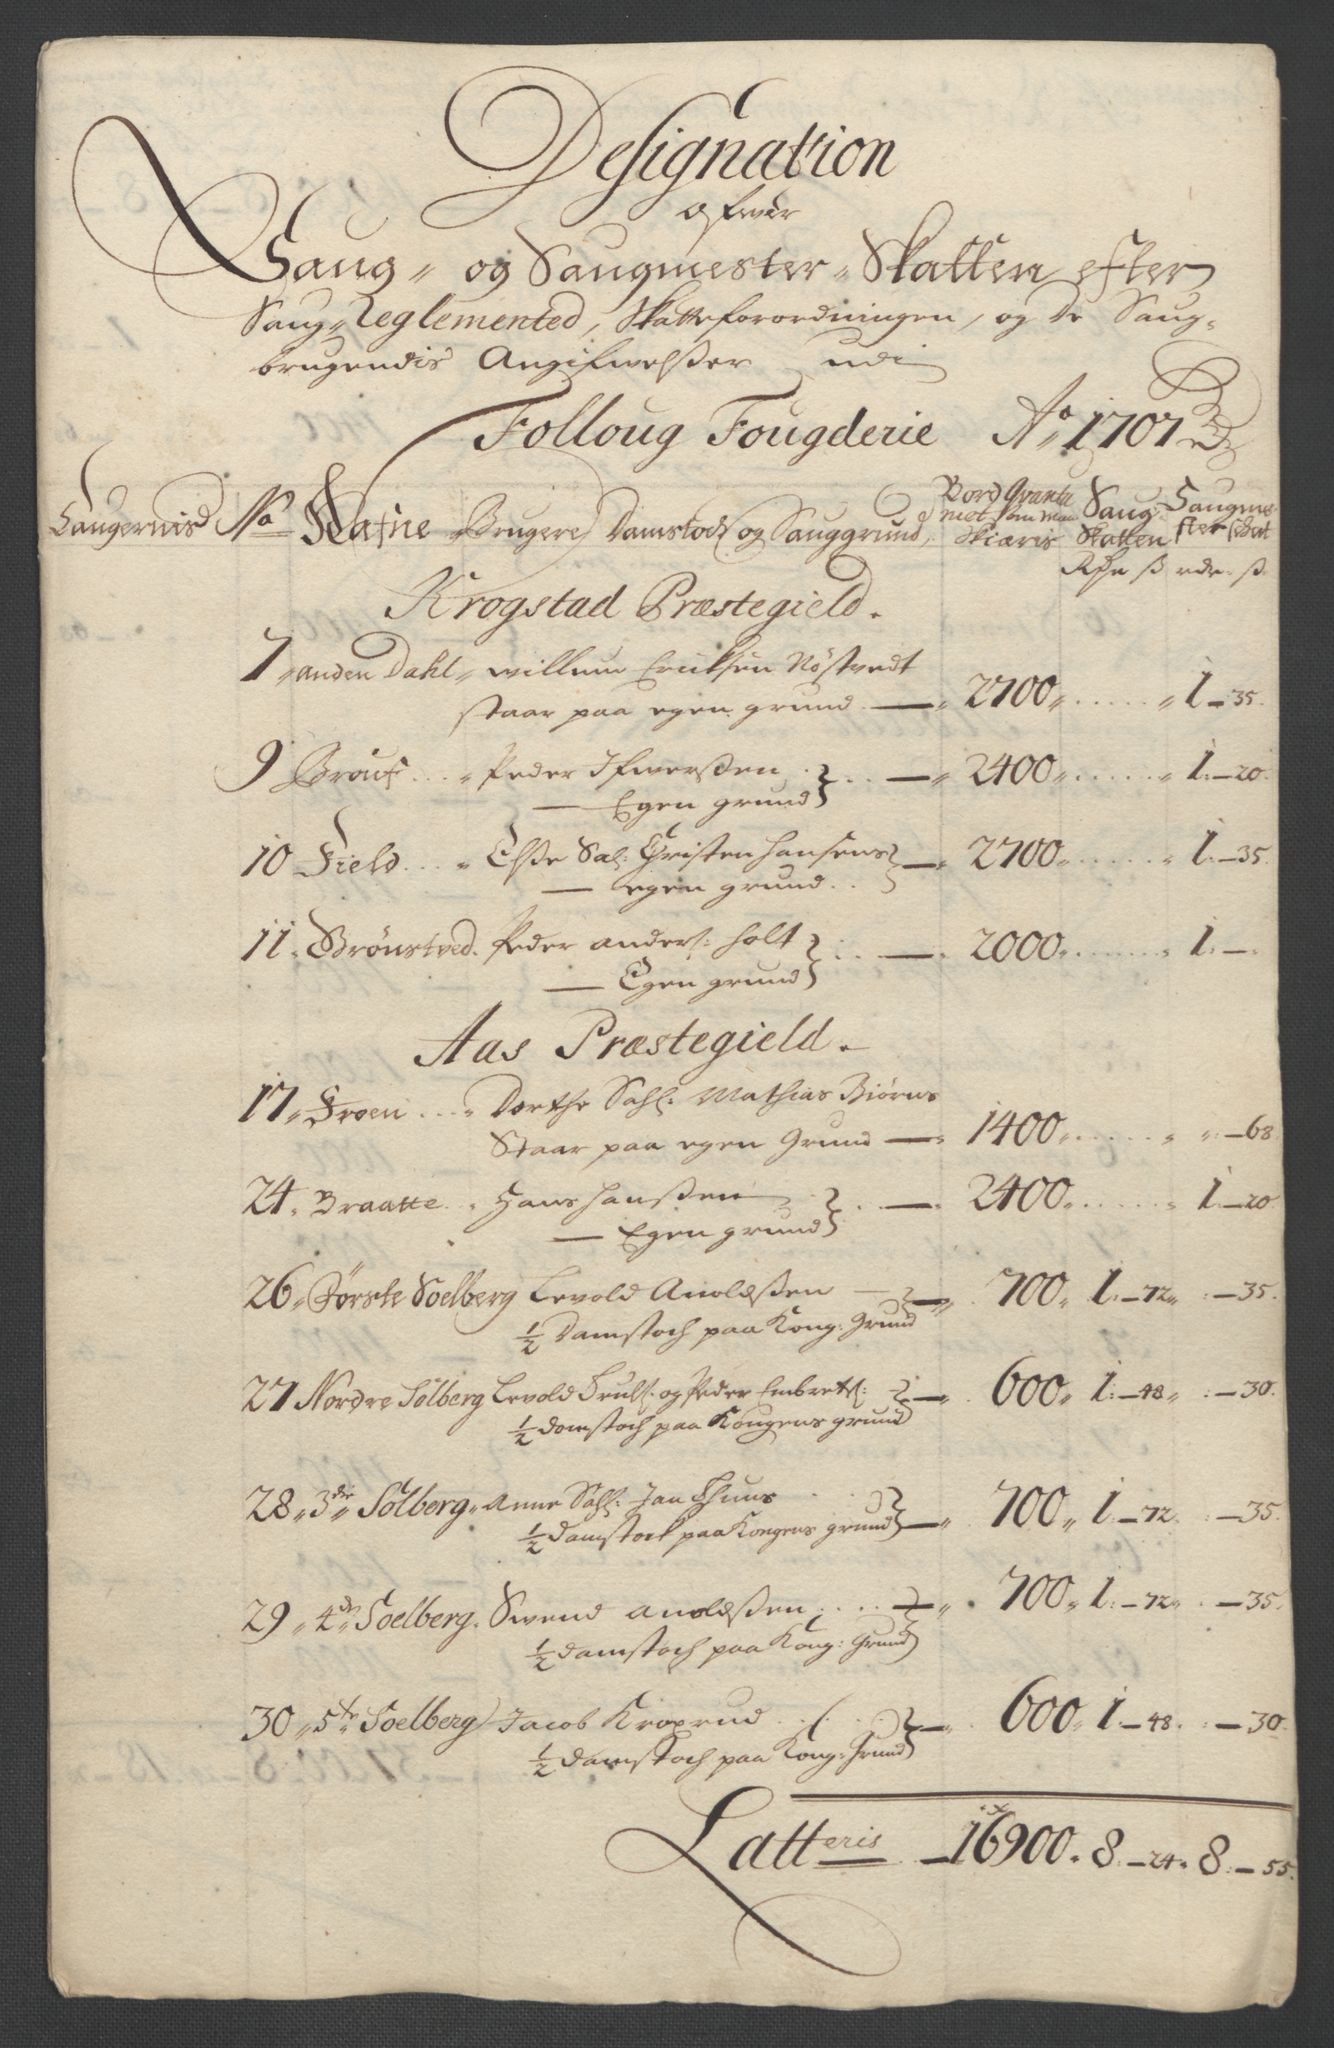 Designation
ofwer
Saug- og Saugmester-Skatten efter
Saug-Reglemented, Skatteforordningen, og de Saug-
brugendis Angifwelßer udi
Folloug Fougderie Ao 1707
Saugernis No Nafne Brugere, Damstock og Sauggrund, Bord Qvantu Saug Saugme-
mot som maa Skatten ster skat
Skiæris
Rdr ß rdr ß
Krogstad Præstegield.
7 anden Dahl Willum Erichsen Nöstvedt
staar paa egen grund 2700 1 - 35.
9 Peder Ifwerßen 2400 1 - 20.
Egen grund
10 Field Elße Sal: Christen Hansens 2700 1 - 35.
egen grund
11 Brönstved Peder anders: Holt 2000 1 -
Egen grund
Aas Præstegield.
17 Froen Dorthe Sahl: Mathias Biörns
Staar paa egen Grund 1400 " - 68
24 Braatte Hans Hanßen 2400 1 - 20
Egen grund
26 Förste Soelberg Levold 700 1 - 72 - 35.
1/2 Damstoch paa Kong: Grund
27 Nordre Solberg Levold Truls: og Peder Embrets: 600 1 - 48 - 30.
1/2 damstoch paa Kongens grund
28 3die Solberg Anne Sahl: Jan 700 1 - 72 - 35.
1/2 damstock paa Kongens grund
29 4de Soelberg Swend 700 1 - 72 - 35.
1/2 damstoch paa Kong: Grund
30 5te Soelberg Jacob Kroprud 600 1 - 48 - 30.
1/2 damstoch paa Kong: Grund
Latteris 16900 8 - 24 8 - 55.